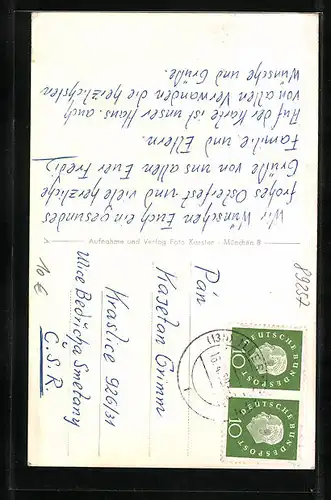 Wir Wünschen Euch ein gesundes
frohes Osterfest und viele herzliche
Grüße von uns allen Euer Fredi,
Familie und Eltern.
Auf der Karte ist unser Haus. auch
von allen Verwanden die herzlichsten
Wünsche und Grüße.
Aufnahme und Verlag Foto Karster - München 8
Pán
Kajetan Grimm
Kraslice 926/31
Ulice Bedřicha Smetany
C.S.R.
10 €
89257
DEUTSCHE BUNDESPOST
10
DEUTSCHE BUNDESPOST
10